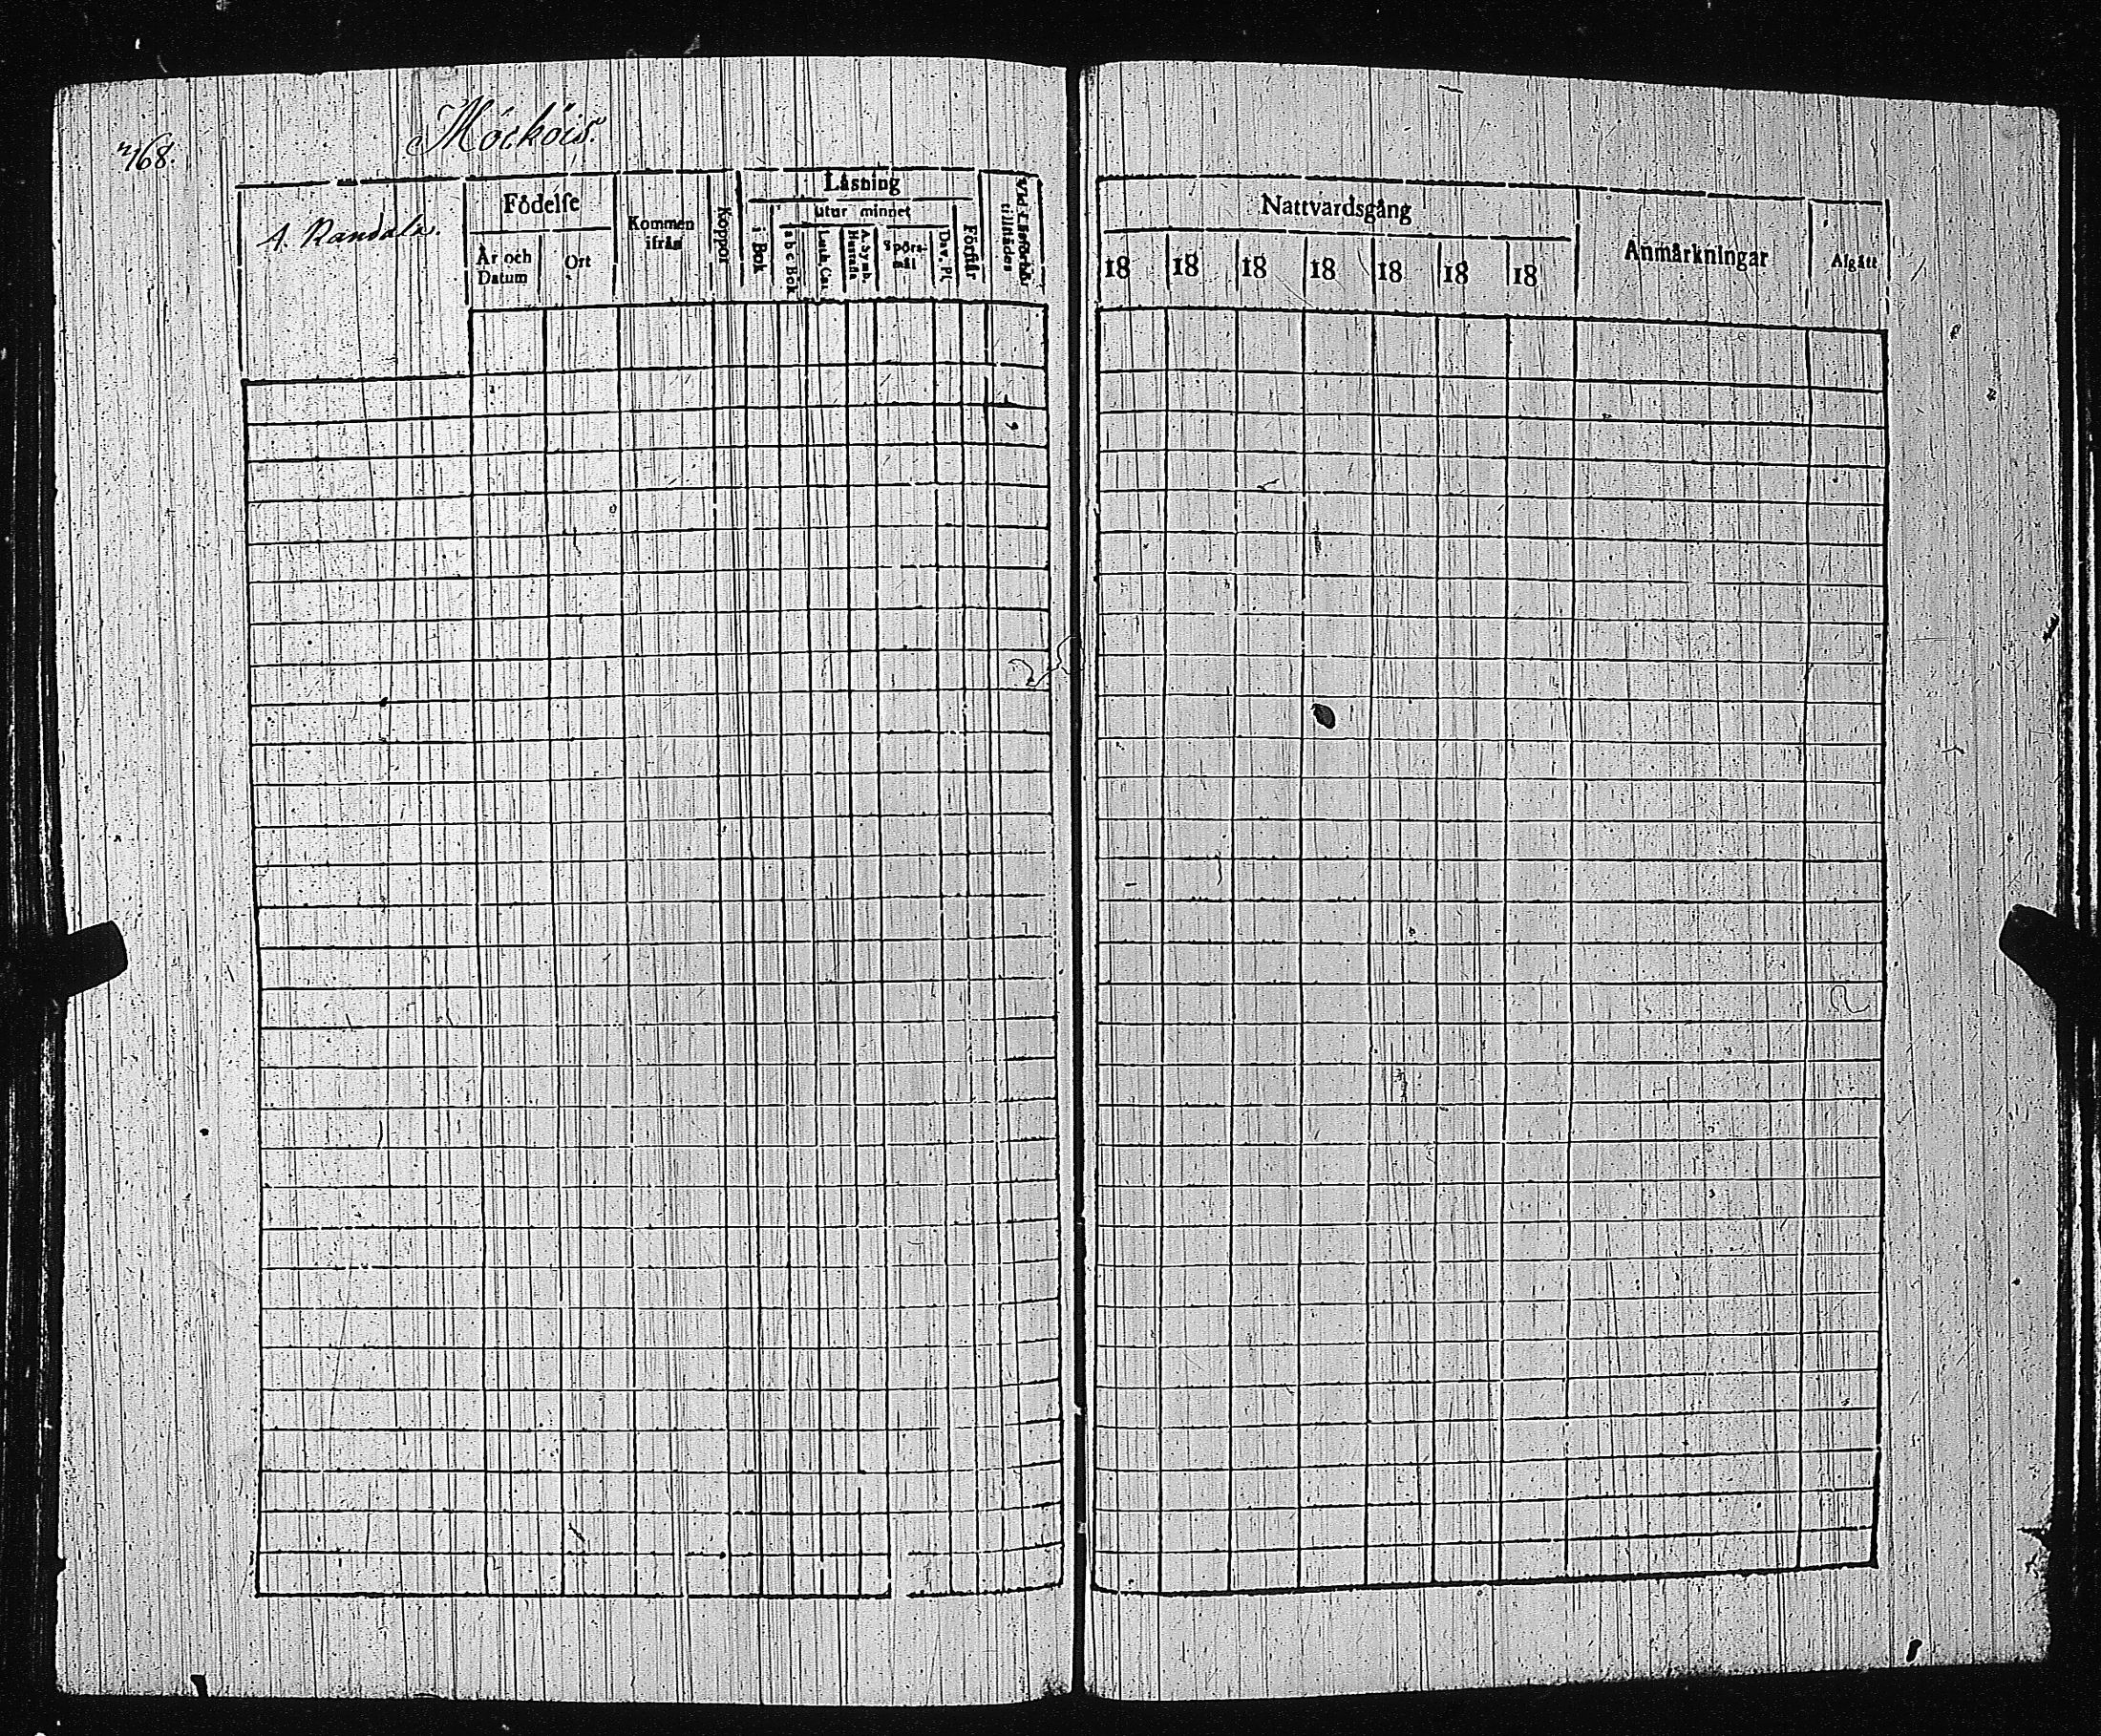 Möcköis.
768.
4. Randala.
Födelse
År och Datum
Ort
Kommen ifrån
Koppor
Läsning
i Bok
utur minnet
a b c Bok
Luth. Cat.
Hustafl.
A. Symb.
Spörsmål
Dav. Ps.
Förstår
Vid Läsförhör tillstädes
Nattvardsgång
18 18 18 18 18 18 18
Anmärkningar
Afgått